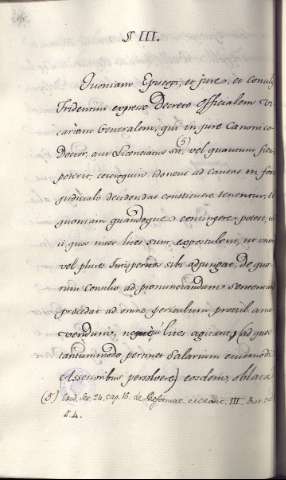 § III.
Quoniam Episcopi, et jure, et Concilij
Tridentini expreso Decreto Officialem Vi
carium Generalem, qui in jure Canonico
Doctor, aut Licenciatus sit, vel quantum fieri
poterit, idoneus ad causas in foro
judiciali decidendas constituere tenentur, et
quoniam quandoque contingere potest, ut
ij, quos inter lites sunt, expostulent, ut unum
vel plures Jurisperitos sibi adjungat, De quo
rum Consilio ad pronuntiandam sententiam
procedat ad omne periculum procul amo
vendum, neque lites agitent, ad quos
tantummodo pertinet Salarium eiusmodi
Assessoribus persolvere) eosdem, oblata
(S) Cond. Ses. 24. cap. 16. de Reformat.
S. 4.